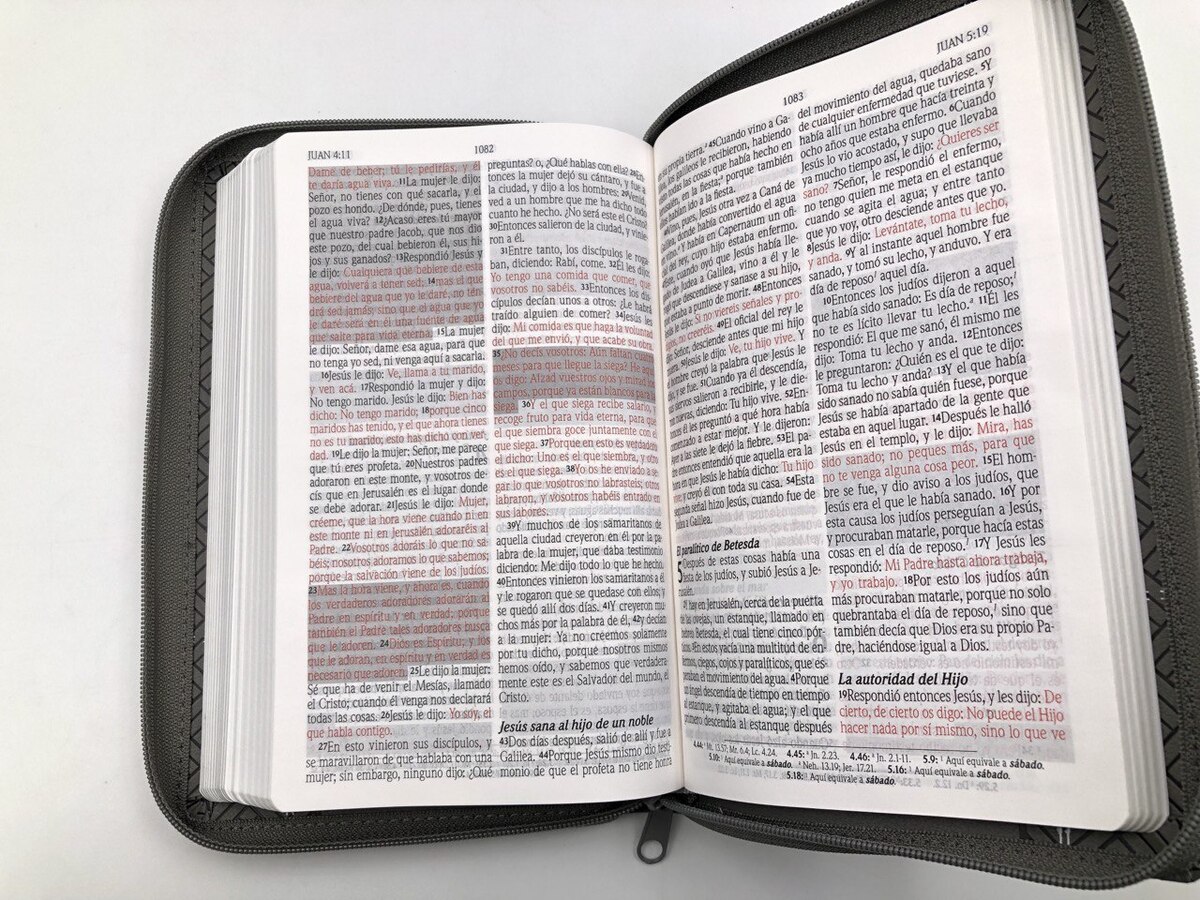 JUAN 4:11
1082
Dame de beber; tú le pedirías, y él
te daría agua viva. 11La mujer le dijo:
Señor, no tienes con qué sacarla, y el
pozo es hondo. ¿De dónde, pues, tienes
el agua viva? 12¿Acaso eres tú mayor
que nuestro padre Jacob, que nos dio
este pozo, del cual bebieron él, sus hi-
jos y sus ganados? 13Respondió Jesús y
le dijo: Cualquiera que bebiere de esta
agua, volverá a tener sed; 14mas el que
bebiere del agua que yo le daré, no ten-
drá sed jamás; sino que el agua que yo
le daré será en él una fuente de agua
que salte para vida eterna. 15La mujer
le dijo: Señor, dame esa agua, para que
no tenga yo sed, ni venga aquí a sacarla.
16Jesús le dijo: Ve, llama a tu marido,
y ven acá. 17Respondió la mujer y dijo:
No tengo marido. Jesús le dijo: Bien has
dicho: No tengo marido; 18porque cinco
maridos has tenido, y el que ahora tienes
no es tu marido; esto has dicho con ver-
dad. 19Le dijo la mujer: Señor, me parece
que tú eres profeta. 20Nuestros padres
adoraron en este monte, y vosotros de-
cís que en Jerusalén es el lugar donde
se debe adorar. 21Jesús le dijo: Mujer,
créeme, que la hora viene cuando ni en
este monte ni en Jerusalén adoraréis al
Padre. 22Vosotros adoráis lo que no sa-
béis; nosotros adoramos lo que sabemos;
porque la salvación viene de los judíos.
23Mas la hora viene, y ahora es, cuando
los verdaderos adoradores adorarán al
Padre en espíritu y en verdad; porque
también el Padre tales adoradores busca
que le adoren. 24Dios es Espíritu; y los
que le adoran, en espíritu y en verdad es
necesario que adoren. 25Le dijo la mujer:
Sé que ha de venir el Mesías, llamado
el Cristo; cuando él venga nos declarará
todas las cosas. 26Jesús le dijo: Yo soy, el
que habla contigo.
27En esto vinieron sus discípulos, y
se maravillaron de que hablaba con una
mujer; sin embargo, ninguno dijo: ¿Qué
preguntas? o, ¿Qué hablas con ella? 28En-
tonces la mujer dejó su cántaro, y fue a
la ciudad, y dijo a los hombres: 29Venid,
ved a un hombre que me ha dicho todo
cuanto he hecho. ¿No será este el Cristo?
30Entonces salieron de la ciudad, y vinie-
ron a él.
31Entre tanto, los discípulos le roga-
ban, diciendo: Rabí, come. 32Él les dijo:
Yo tengo una comida que comer, que
vosotros no sabéis. 33Entonces los dis-
cípulos decían unos a otros: ¿Le habrá
traído alguien de comer? 34Jesús les
dijo: Mi comida es que haga la voluntad
del que me envió, y que acabe su obra.
35¿No decís vosotros: Aún faltan cuatro
meses para que llegue la siega? He aquí
os digo: Alzad vuestros ojos y mirad los
campos, porque ya están blancos para la
siega. 36Y el que siega recibe salario, y
recoge fruto para vida eterna, para que
el que siembra goce juntamente con el
que siega. 37Porque en esto es verdadero
el dicho: Uno es el que siembra, y otro
es el que siega. 38Yo os he enviado a se-
gar lo que vosotros no labrasteis; otros
labraron, y vosotros habéis entrado en
sus labores.
39Y muchos de los samaritanos de
aquella ciudad creyeron en él por la pa-
labra de la mujer, que daba testimonio
diciendo: Me dijo todo lo que he hecho.
40Entonces vinieron los samaritanos a él
y le rogaron que se quedase con ellos; y
se quedó allí dos días. 41Y creyeron mu-
chos más por la palabra de él, 42y decían
a la mujer: Ya no creemos solamente
por tu dicho, porque nosotros mismos
hemos oído, y sabemos que verdadera-
mente este es el Salvador del mundo, el
Cristo.
Jesús sana al hijo de un noble
43Dos días después, salió de allí y fue a
Galilea. 44Porque Jesús mismo dio testi-
monio de que el profeta no tiene honra
1083
JUAN 5:19
su propia tierra. 45Cuando vino a Ga-
los galileos le recibieron, habiendo
todas las cosas que había hecho en
en la fiesta; porque también
habían ido a la fiesta.
pues, Jesús otra vez a Caná de
donde había convertido el agua
Y había en Capernaum un ofi-
del rey, cuyo hijo estaba enfermo.
cuando oyó que Jesús había lle-
de Judea a Galilea, vino a él y le
que descendiese y sanase a su hijo,
estaba a punto de morir. 48Entonces
le dijo: Si no viereis señales y pro-
no creeréis. 49El oficial del rey le
Señor, desciende antes que mi hijo
50Jesús le dijo: Ve, tu hijo vive. Y
hombre creyó la palabra que Jesús le
y se fue. 51Cuando ya él descendía,
siervos salieron a recibirle, y le die-
nuevas, diciendo: Tu hijo vive. 52En-
él les preguntó a qué hora había
comenzado a estar mejor. Y le dijeron:
a las siete le dejó la fiebre. 53El pa-
entonces entendió que aquella era la
en que Jesús le había dicho: Tu hijo
y creyó él con toda su casa. 54Esta
segunda señal hizo Jesús, cuando fue de
a Galilea.
El paralítico de Betesda
5 Después de estas cosas había una
fiesta de los judíos, y subió Jesús a Je-
rusalén.
hay en Jerusalén, cerca de la puerta
las ovejas, un estanque, llamado en
Betesda, el cual tiene cinco pór-
En estos yacía una multitud de en-
ciegos, cojos y paralíticos, que es-
el movimiento del agua. 4Porque
ángel descendía de tiempo en tiempo
al estanque, y agitaba el agua; y el que
primero descendía al estanque después
del movimiento del agua, quedaba sano
de cualquier enfermedad que tuviese. 5Y
había allí un hombre que hacía treinta y
ocho años que estaba enfermo. 6Cuando
Jesús lo vio acostado, y supo que llevaba
ya mucho tiempo así, le dijo: ¿Quieres ser
sano? 7Señor, le respondió el enfermo,
no tengo quien me meta en el estanque
cuando se agita el agua; y entre tanto
que yo voy, otro desciende antes que yo.
8Jesús le dijo: Levántate, toma tu lecho,
y anda. 9Y al instante aquel hombre fue
sanado, y tomó su lecho, y anduvo. Y era
día de reposo aquel día.
10Entonces los judíos dijeron a aquel
que había sido sanado: Es día de reposo;
no te es lícito llevar tu lecho. 11Él les
respondió: El que me sanó, él mismo me
dijo: Toma tu lecho y anda. 12Entonces
le preguntaron: ¿Quién es el que te dijo:
Toma tu lecho y anda? 13Y el que había
sido sanado no sabía quién fuese, porque
Jesús se había apartado de la gente que
estaba en aquel lugar. 14Después le halló
Jesús en el templo, y le dijo: Mira, has
sido sanado; no peques más, para que
no te venga alguna cosa peor. 15El hom-
bre se fue, y dio aviso a los judíos, que
Jesús era el que le había sanado. 16Y por
esta causa los judíos perseguían a Jesús,
y procuraban matarle, porque hacía estas
cosas en el día de reposo. 17Y Jesús les
respondió: Mi Padre hasta ahora trabaja,
y yo trabajo. 18Por esto los judíos aún
más procuraban matarle, porque no solo
quebrantaba el día de reposo, sino que
también decía que Dios era su propio Pa-
dre, haciéndose igual a Dios.
La autoridad del Hijo
19Respondió entonces Jesús, y les dijo: De
cierto, de cierto os digo: No puede el Hijo
hacer nada por sí mismo, sino lo que ve
4.44: Mt. 13.57; Mr. 6.4; Lc. 4.24. 4.45: Jn. 2.23. 4.46: Jn. 2.1-11. 5.9: Aquí equivale a sábado.
5.10: Aquí equivale a sábado. Neh. 13.19; Jer. 17.21. 5.16: Aquí equivale a sábado.
5.18: Aquí equivale a sábado.